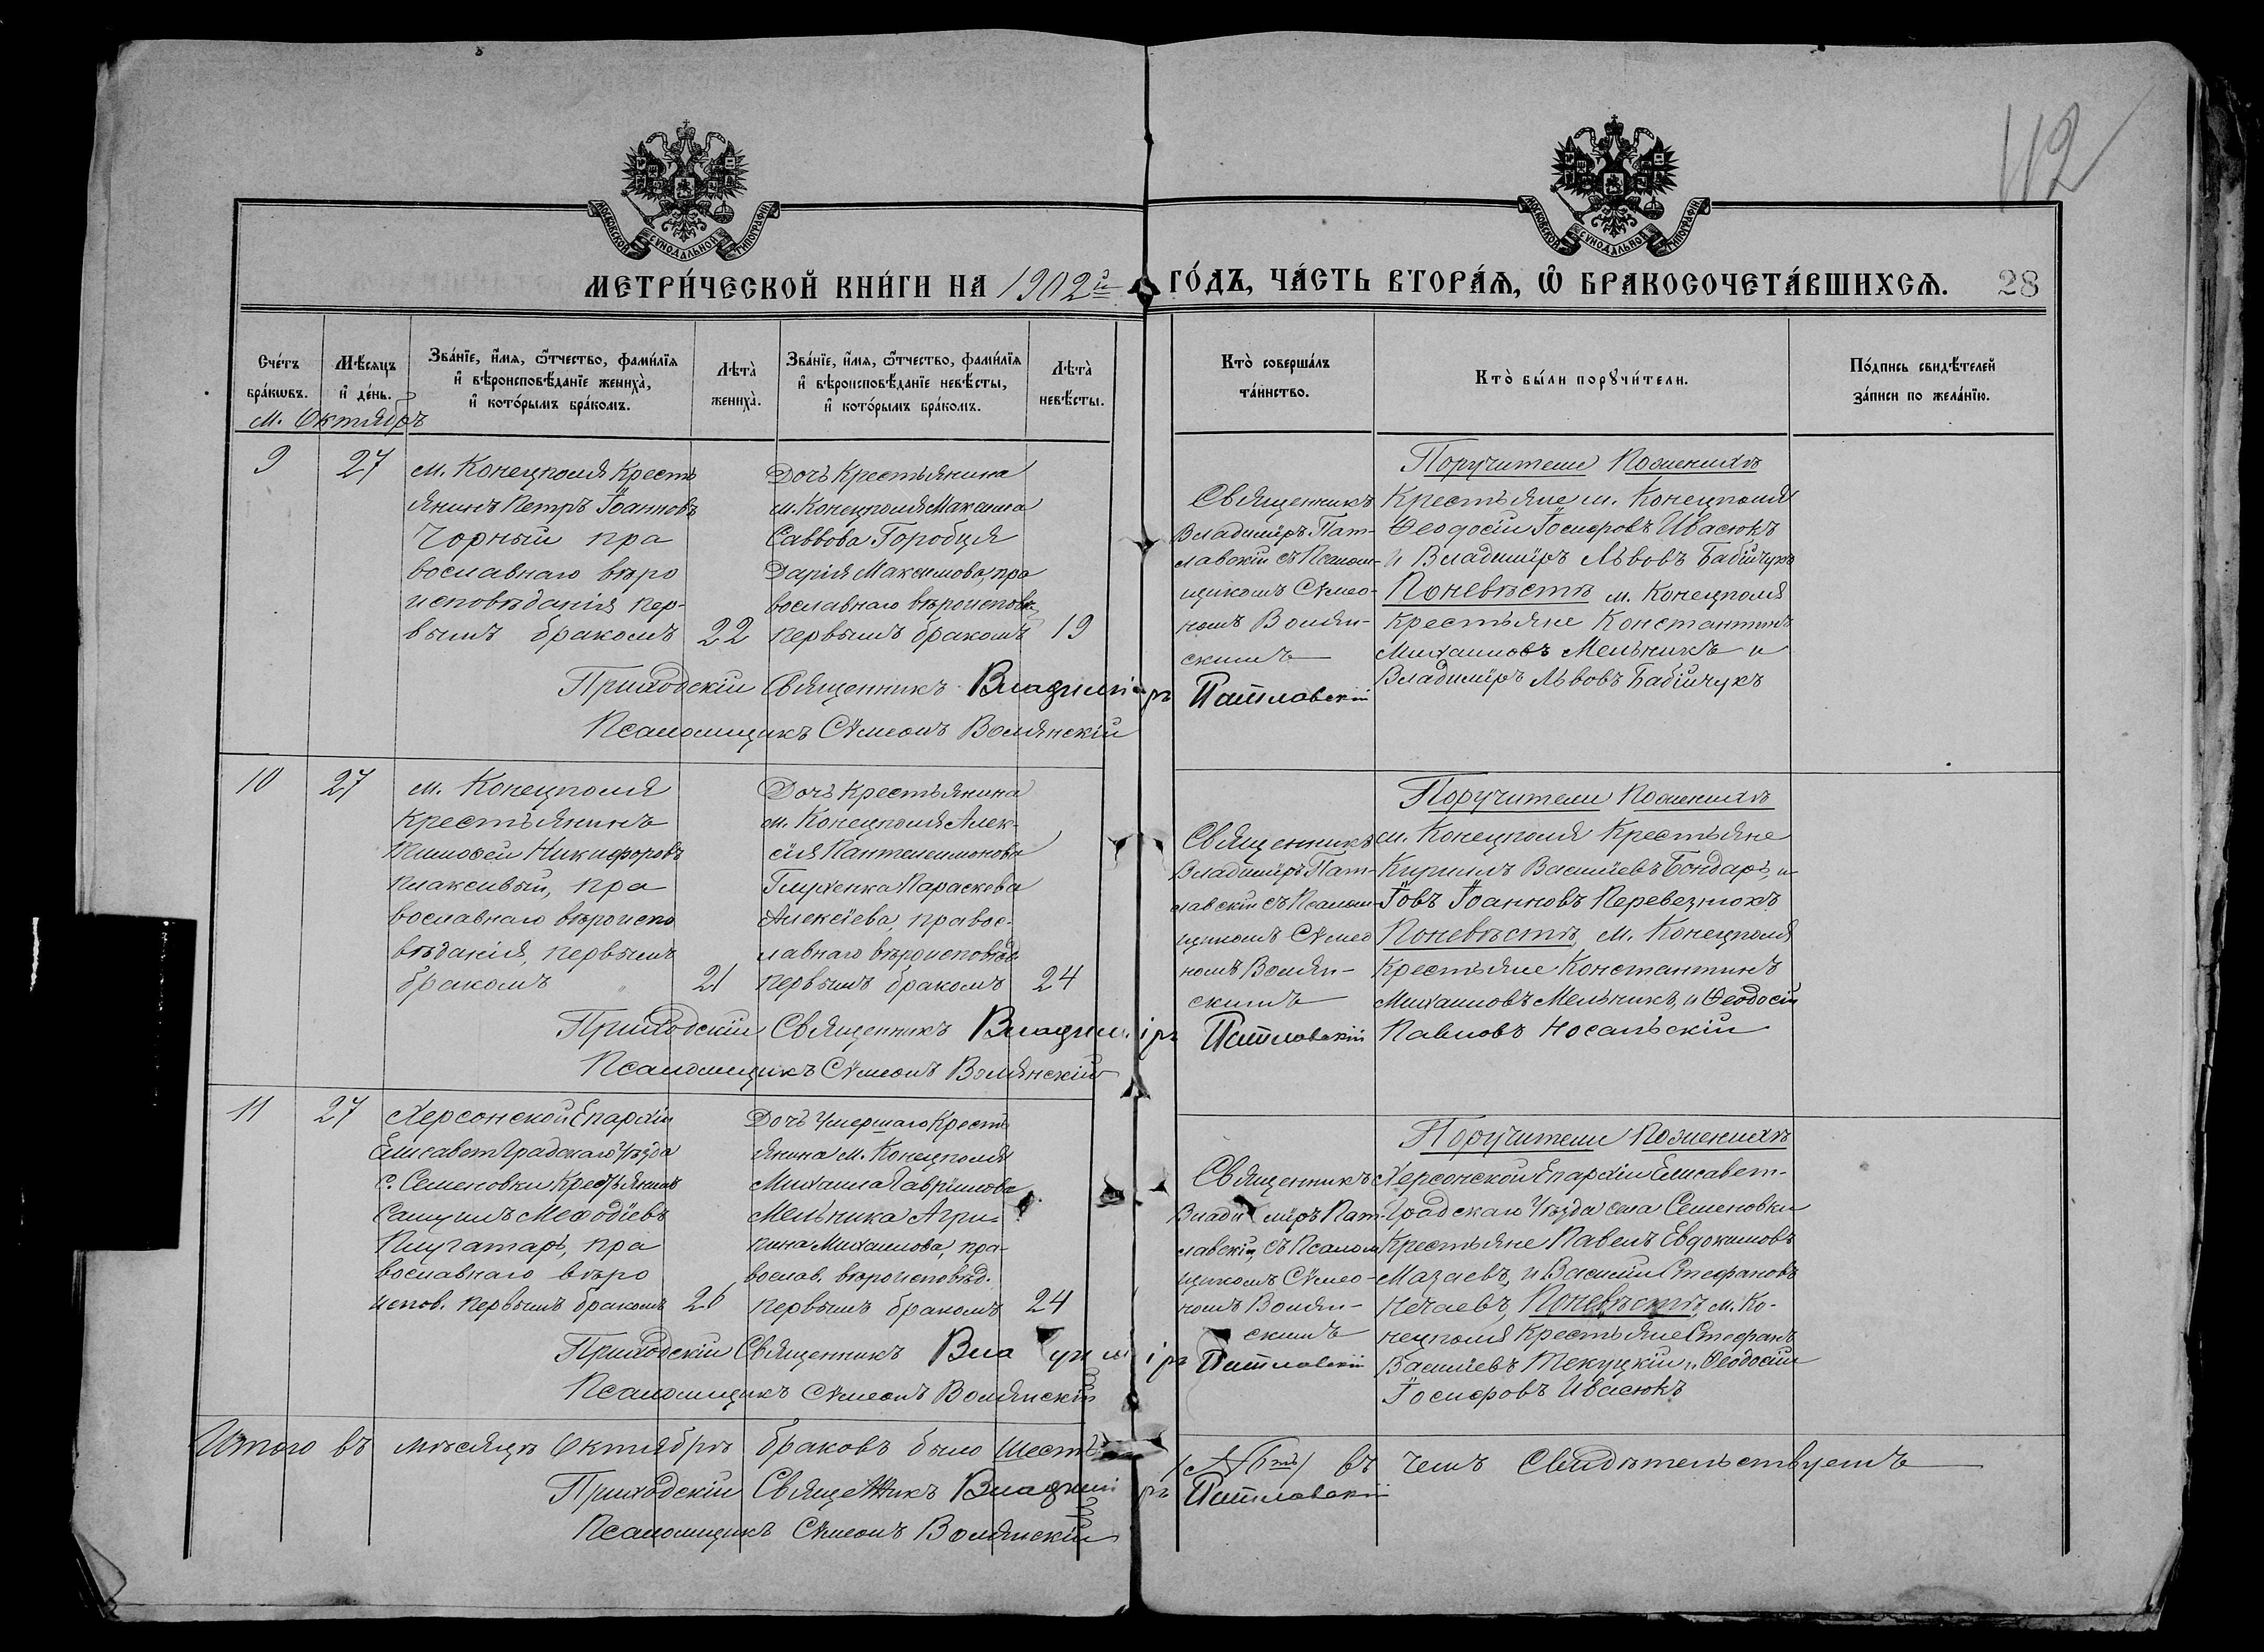 112
МОСКОВСКОЙ СѴНОДАЛЬНОЙ ТИПОГРАФІИ
МОСКОВСКОЙ СѴНОДАЛЬНОЙ ТИПОГРАФІИ
МЕТРИ́ЧЕСКОЙ КНИ́ГИ НА 1902й ГО́ДЪ, ЧА́СТЬ ВТОРА́Ѧ, Ѽ БРАКОСОЧЕТА́ВШИХСѦ. 28
Сче́тъ
бра́кѡвъ.
Мѣ́сѧцъ
и҆ де́нь.
Зва́нїе, и҆́мѧ, ѻ҆́тчество, фами́лїѧ
и҆ вѣроисповѣ́данїе жениха̀,
и҆ кото́рымъ бра́комъ.
Лѣта̀
жениха̀.
Зва́нїе, и҆́мѧ, ѻ҆́тчество, фами́лїѧ
и҆ вѣроисповѣ́данїе невѣ́сты,
и҆ кото́рымъ бра́комъ.
Лѣта̀
невѣ́сты.
Кто̀ соверша́лъ
та́инство.
Кто̀ бы́ли порꙋчи́тели.
По́дпись свидѣ́телей
за́писи по жела́нїю.
м. Октябрь
9
27
м. Конецполя Кресть
янинъ Петръ Іоанновъ
Чорный пра
вославнаго вѣро
исповѣданія пер-
вымъ бракомъ
22
Дочь Крестьянина
м. Конецполя Максима
Саввова Горобця
Дарія Максимова, пра
вославнаго вѣроисповѣ.
первымъ бракомъ
19
Священникъ
Владиміръ Пат-
лавскій съ Псалом-
щикомъ Сѵмео-
номъ Волян-
скимъ
Поручители По женихѣ
Крестьяне м. Конецполя
Ѳеодосій Іосифовъ Ивасюкъ
и Владиміръ Львовъ Бабійчукъ
По невѣстѣ м. Конецполя
Крестьяне Константинъ
Михаиловъ Мельникъ и
Владиміръ Львовъ Бабійчукъ
Приходскій Священникъ Владиміръ Патлавскій
Псаломщикъ Сѵмеонъ Волянскій
10
27
м. Конецполя
Крестьянинъ
Тимоѳей Никифоровъ
Плаксивый, пра
вославнаго вѣроиспо
вѣданія, первымъ
бракомъ
21
Дочь Крестьянина
м. Конецполя Алек-
сія Пантелеимонова
Глущенка Параскева
Алексіева, правос-
лавнаго вѣроисповѣд.
первымъ бракомъ
24
Священникъ
Владиміръ Пат-
лавскій съ Псалом-
щикомъ Сѵмео
номъ Волян-
скимъ
Поручители По женихѣ
м. Конецполя Крестьяне
Кириллъ Васильевъ Бондарь, и
Іовъ Іоанновъ Перевезнюкъ
По невѣстѣ, м. Конецполя
Крестьяне Константинъ
Михаиловъ Мельникъ, и Ѳеодосій
Павловъ Носальскій
Приходскій Священникъ Владиміръ Патлавскій
Псаломщикъ Сѵмеонъ Волянскій
11
27
Херсонской Епархіи
Елисаветградскаго Уѣзда
с. Семеновки Крестьянинъ
Самуилъ Меѳодіевъ
Плугатарь, пра
вославнаго вѣро
испов. первымъ бракомъ
Дочь Умершаго Кресть
янина м. Конецполя
Михаила Гавріилова
Мельника Агри-
пина Михаилова, пра-
вослав. вѣроисповѣд.
первымъ бракомъ
24
Священникъ
Владиміръ Пат-
лавскій, съ Псалом
щикомъ Сѵмео-
номъ Волян-
скимъ
Поручители По женихѣ
Херсонской Епархіи Елисавет-
градскаго Уѣзда села Семеновки
Крестьяне Павелъ Евдокимовъ
Мазаевъ, и Василій Стефановъ
Нечаевъ, По невѣстѣ, м. Ко-
нецполя Крестьяне Стефанъ
Васильевъ Текуцкій и Ѳеодосій
Іосифовъ Ивасюкъ
Приходскій Священникъ Владиміръ Патлавскій
Псаломщикъ Сѵмеонъ Волянскій
Итого въ мѣсяцѣ Октябрѣ браковъ было Шесть въ чемъ Свидѣтельствуемъ
Приходскій Священникъ Владиміръ Патлавскій
Псаломщикъ Сѵмеонъ Волянскій